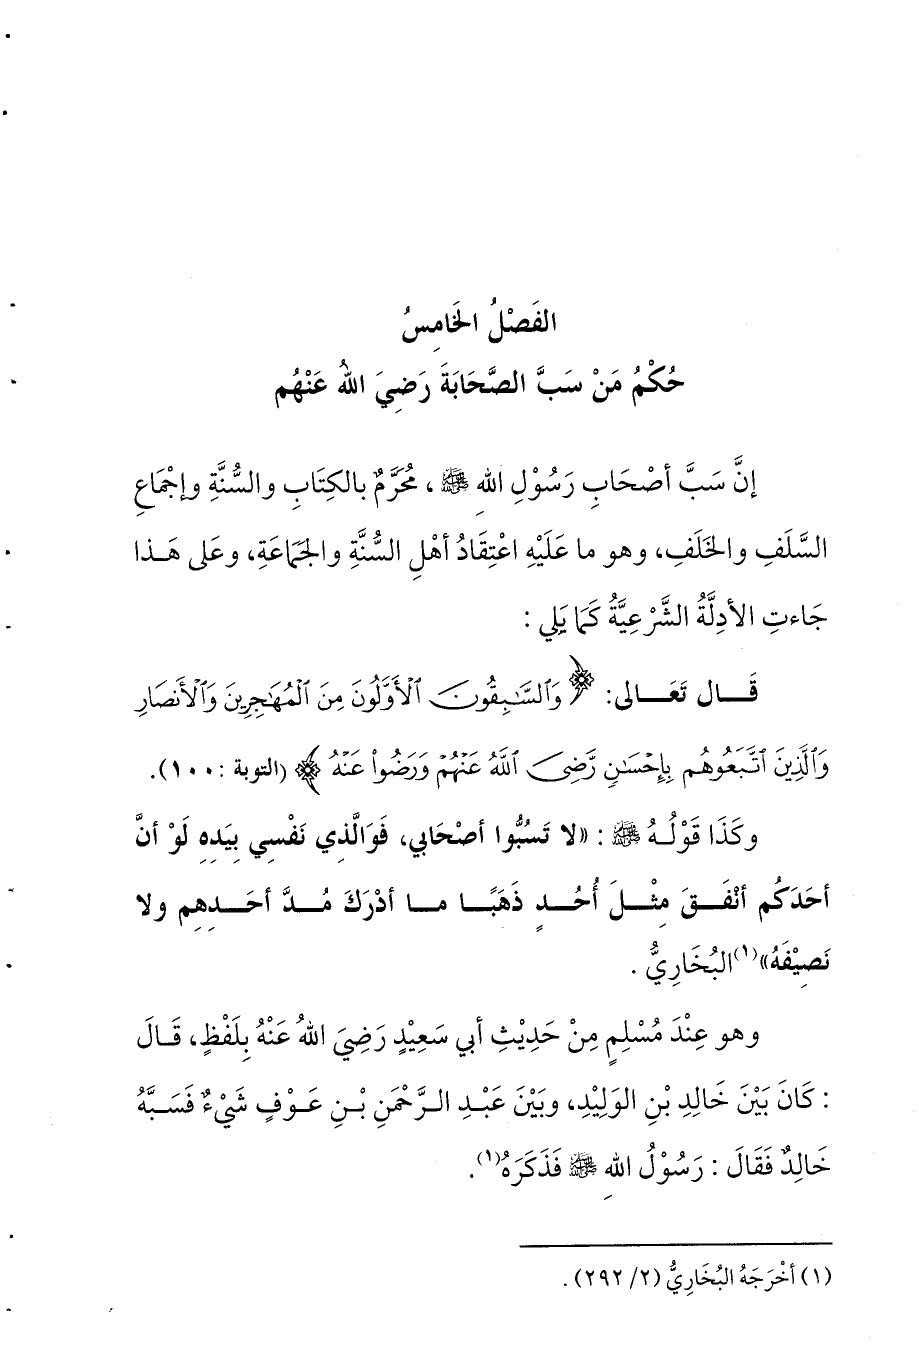 الفَصْلُ الخَامِسُ
حُكْمُ مَنْ سَبَّ الصَّحَابَةَ رَضِيَ اللهُ عَنْهُم
إنَّ سَبَّ أصْحَابِ رَسُوْلِ اللهِ ﷺ ، مُحَرَّمٌ بالكِتَابِ والسُّنَّةِ وإجْمَاعِ
السَّلَفِ والخَلَفِ، وهو ما عَلَيْهِ اعْتِقَادُ أهْلِ السُّنَّةِ والجَمَاعَةِ، وعَلى هَـذا
جَاءتِ الأدِلَّةُ الشَّرْعِيَّةُ كَمَا يَلي :
قَــال تَعَــالى: ﴿ وَٱلسَّـٰبِقُونَ ٱلْأَوَّلُونَ مِنَ ٱلْمُهَـٰجِرِينَ وَٱلْأَنصَارِ
وَٱلَّذِينَ ٱتَّبَعُوهُم بِإِحْسَـٰنٍ رَّضِىَ ٱللَّهُ عَنْهُمْ وَرَضُوا۟ عَنْهُ ﴾ (التوبة :١٠٠).
وكَذَا قَوْلُـهُ ﷺ : «لا تَسُبُّوا أصْحَابي، فَوَالَّذي نَفْسِي بِيَدِهِ لَوْ أنَّ
أحَدَكُم أنْفَــقَ مِثْــلَ أُحُــدٍ ذَهَبًــا مــا أدْرَكَ مُــدَّ أحَــدِهِم ولا
نَصِيْفَهُ»(١)البُخَارِيُّ .
وهو عِنْدَ مُسْلِمٍ مِنْ حَدِيْثِ أبي سَعِيْدٍ رَضِيَ اللهُ عَنْهُ بِلَفْظٍ، قَـالَ
: كَانَ بَيْنَ خَالِدِ بْنِ الوَلِيْدِ، وبَيْنَ عَبْدِ الـرَّحْمَنِ بْـنِ عَـوْفٍ شَيْءٌ فَسَـبَّهُ
خَالِدٌ فَقَالَ : رَسُوْلُ اللهِ ﷺ فَذَكَرَهُ(١).
(١) أخْرَجَهُ البُخَارِيُّ (٢/ ٢٩٢) .